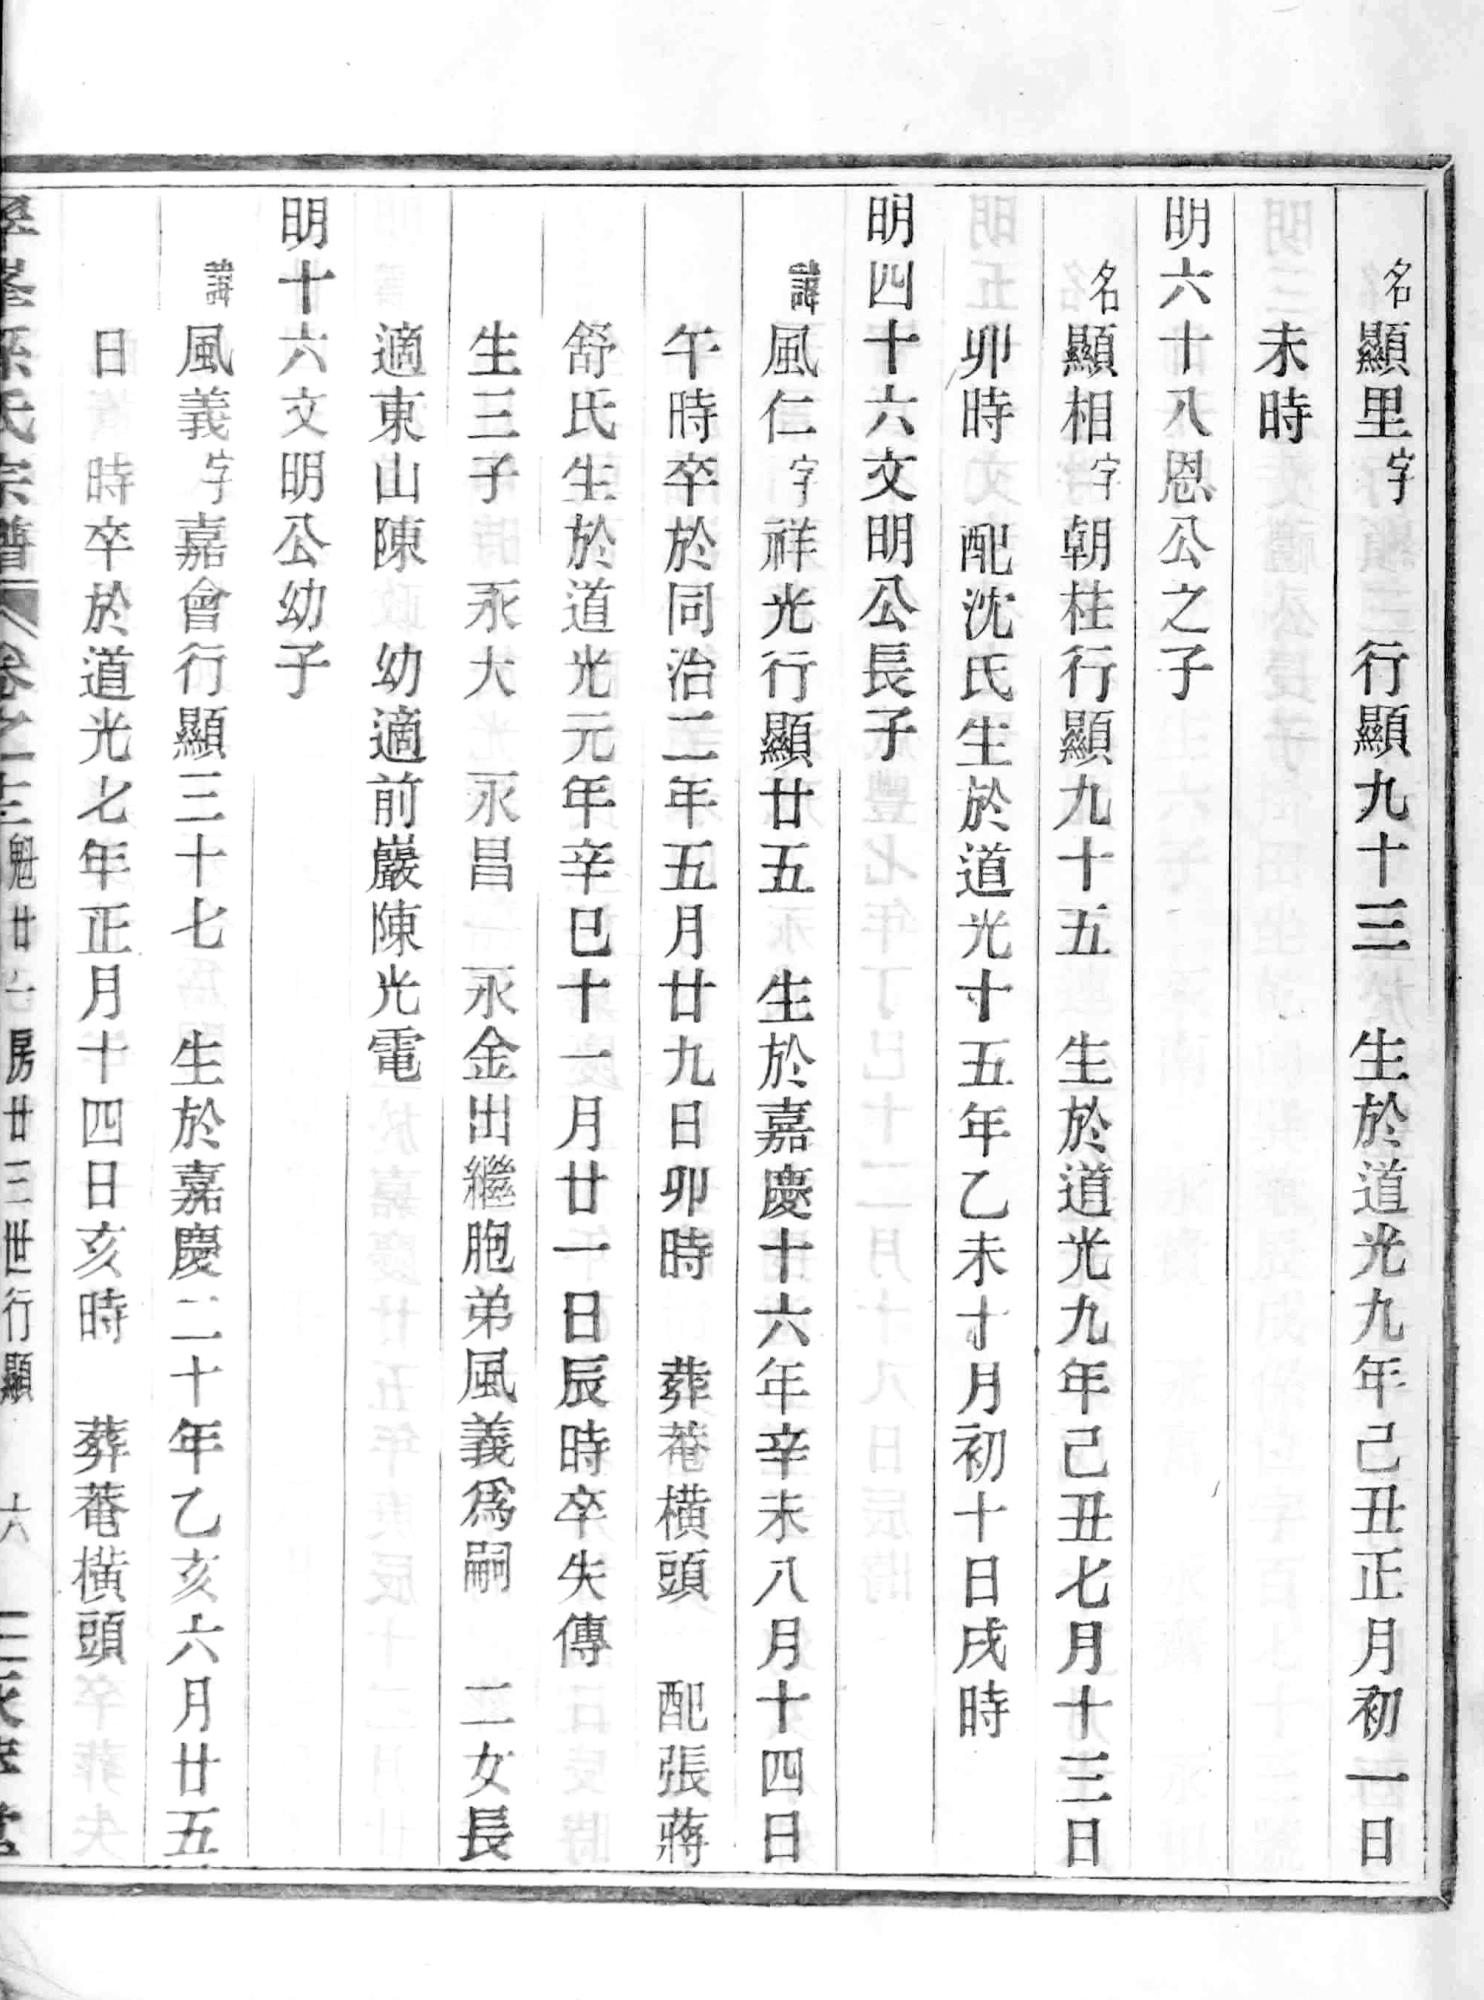 名顯里字　　行顯九十三　生於道光九年己丑正月初一日
未時
明六十八恩公之子
名顯相字朝柱行顯九十五　生於道光九年己丑七月十三日
卯時　配沈氏生於道光十五年乙未十月初十日戌時
明四十六文明公長子
諱風仁字祥光行顯廿五　生於嘉慶十六年辛未八月十四日
午時卒於同治二年五月廿九日卯時　葬菴橫頭　配張蔣
舒氏生於道光元年辛巳十一月廿一日辰時卒失傳
生三子　永大　永昌　永金出繼胞弟風義爲嗣　二女長
適東山陳　幼適前巖陳光電
明十六文明公幼子
諱風義字嘉會行顯三十七　生於嘉慶二十年乙亥六月廿五
日　時卒於道光七年正月十四日亥時　葬菴橫頭
氏宗譜　卷之　魁廿七房廿三世行顯　六　堂